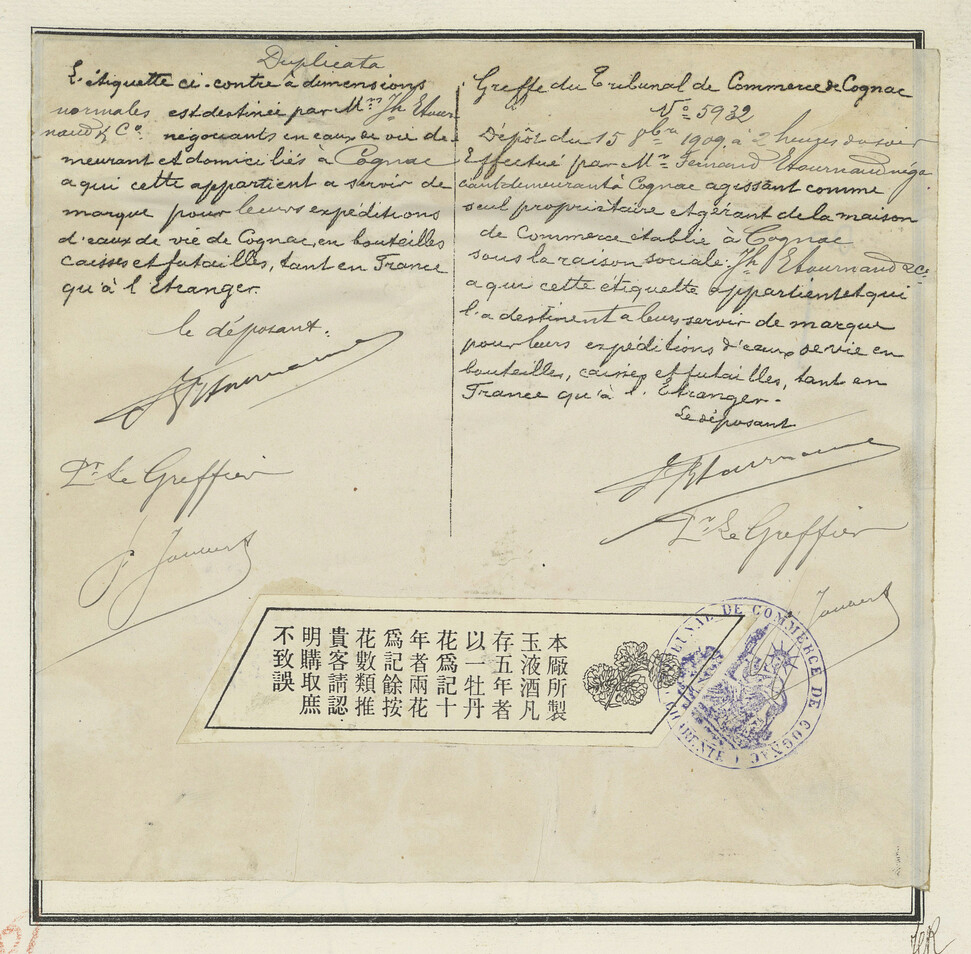 Duplicata
L'étiquette ci-contre à dimensions
normales est destinée par Mrs Jh Etour-
naud & Co. négociants en eaux de vie de-
meurant et domiciliés à Cognac
a qui cette appartient a servir de
marque pour leurs expéditions
d'eaux de vie de Cognac, en bouteilles
caisses et futailles, tant en France
qu'à l'étranger.
le déposant.
Pr Le Greffier
Greffe du Tribunal de Commerce de Cognac
No 5932
Dépôt du 15 9bre 1909, à 2 heures du soir
Effectué par Mr Fernand Etournaud négo-
ciant demeurant à Cognac agissant comme
seul propriétaire et gérant de la maison
de Commerce établie à Cognac
sous la raison sociale: Jh Etournaud & Co.
a qui cette étiquette appartient et qui
l'a destinent a leurs servir de marque
pour leurs expéditions d'eaux de vie en
bouteilles, caisses et futailles, tant en
France qu'à l'Etranger.
Le déposant
Pr Le Greffier
本廠所製
玉液酒凡
存五年者
以一牡丹
花為記十
年者兩花
為記餘按
花數類推
貴客請認
明購取庶
不致誤
TRIBUNAL DE COMMERCE DE COGNAC (CHARENTE)